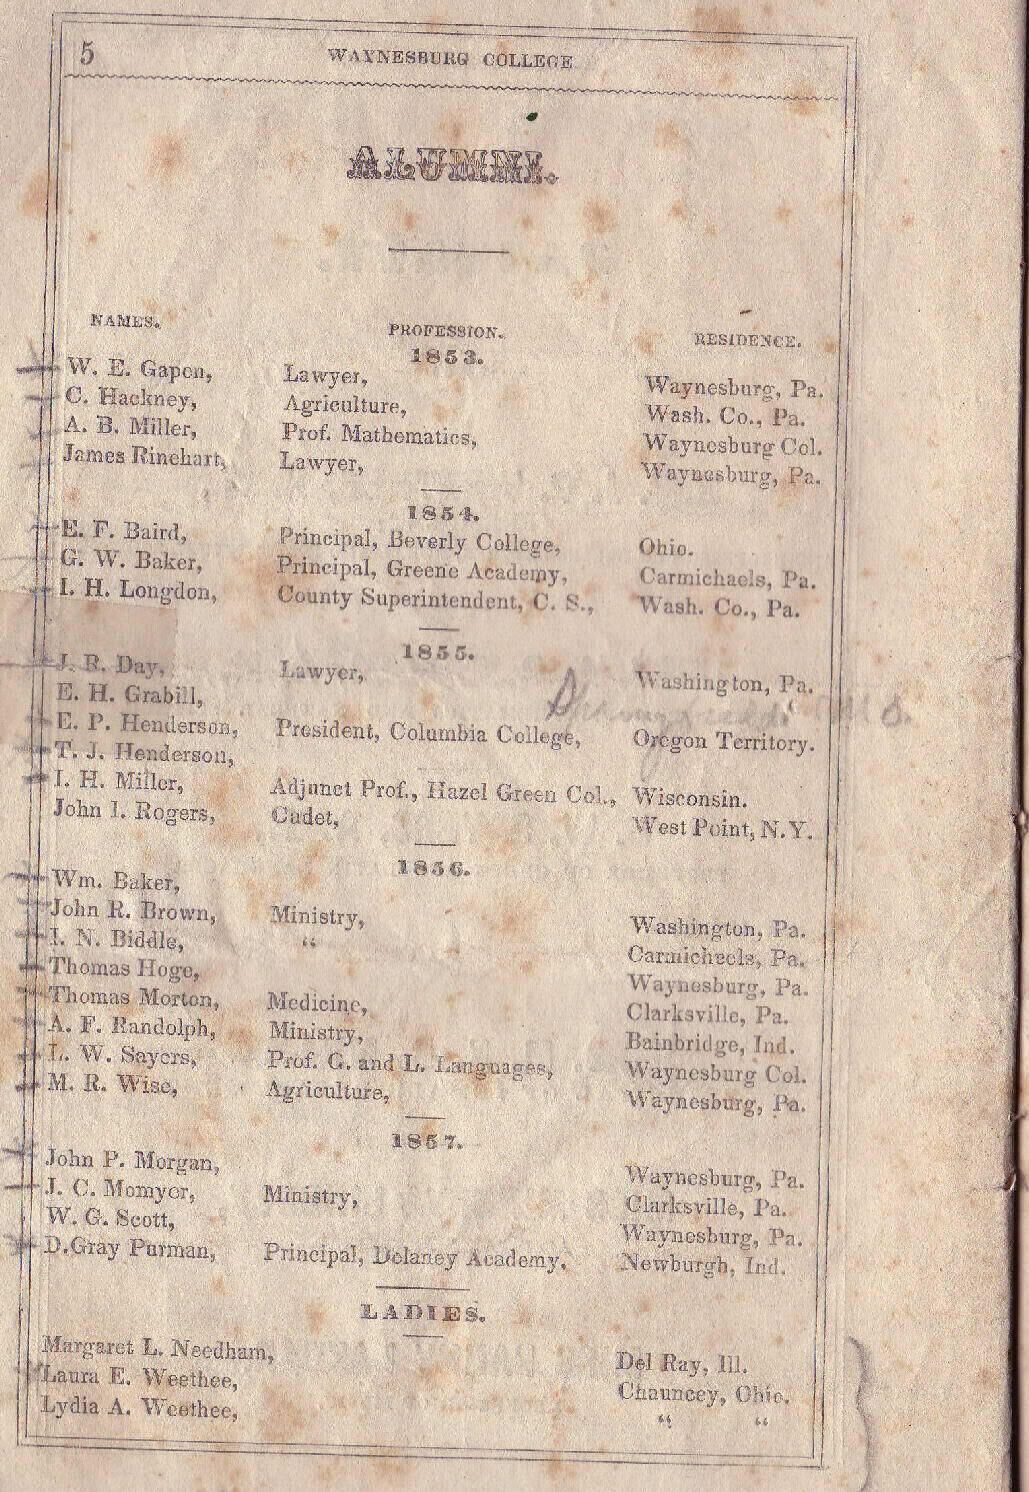 5 WAYNESBURG COLLEGE
ALUMNI.
NAMES. PROFESSION. RESIDENCE.
1853.
W. E. Gapen, Lawyer, Waynesburg, Pa.
C. Hackney, Agriculture, Wash. Co., Pa.
A. B. Miller, Prof. Mathematics, Waynesburg Col.
James Rinehart, Lawyer, Waynesburg, Pa.
1854.
E. F. Baird, Principal, Beverly College, Ohio.
G. W. Baker, Principal, Greene Academy, Carmichaels, Pa.
I. H. Longdon, County Superintendent, C. S., Wash. Co., Pa.
1855.
J. R. Day, Lawyer, Washington, Pa.
E. H. Grabill,
E. P. Henderson, President, Columbia College, Oregon Territory.
T. J. Henderson,
I. H. Miller, Adjunct Prof., Hazel Green Col., Wisconsin.
John I. Rogers, Cadet, West Point, N.Y.
1856.
Wm. Baker, Washington, Pa.
John R. Brown, Ministry, Carmichaels, Pa.
I. N. Biddle, “ Waynesburg, Pa.
Thomas Hoge, Clarksville, Pa.
Thomas Morton, Medicine, Bainbridge, Ind.
A. F. Randolph, Ministry, Waynesburg Col.
L. W. Sayers, Prof. G. and L. Languages, Waynesburg, Pa.
M. R. Wise, Agriculture,
1857.
John P. Morgan, Waynesburg, Pa.
J. C. Momyer, Ministry, Clarksville, Pa.
W. G. Scott, Waynesburg, Pa.
D. Gray Purman, Principal, Delaney Academy, Newburgh, Ind.
LADIES.
Margaret L. Needham, Del Ray, Ill.
Laura E. Weethee, Chauncey, Ohio.
Lydia A. Weethee, “ “